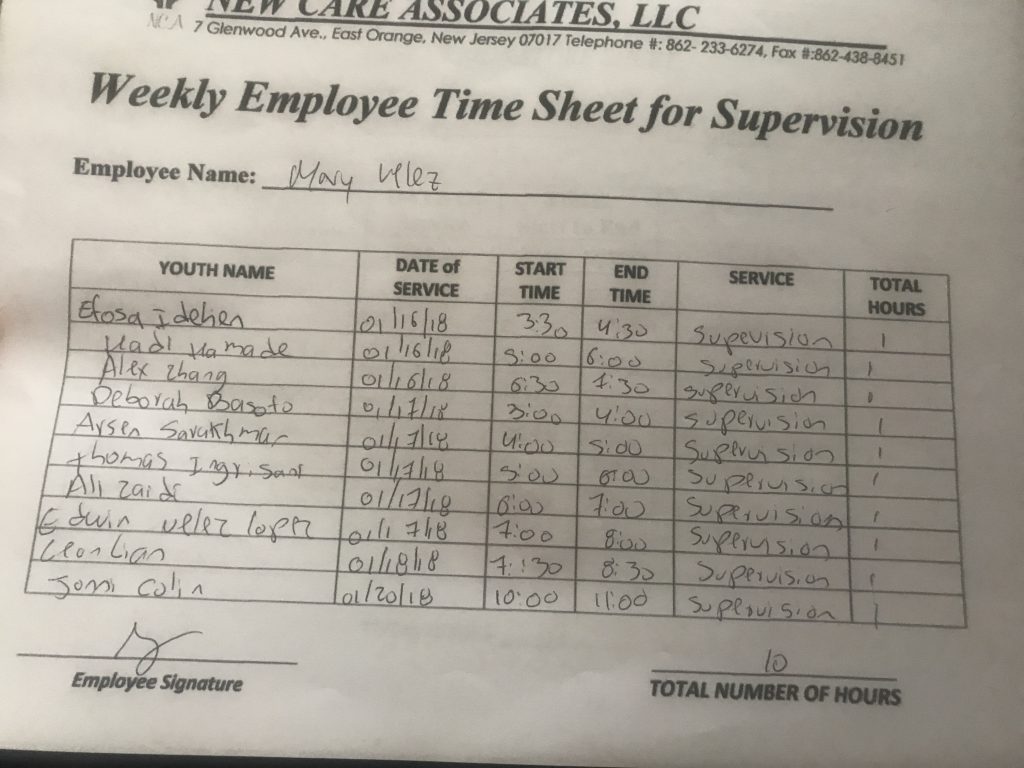 NEW CARE ASSOCIATES, LLC
NCA 7 Glenwood Ave., East Orange, New Jersey 07017 Telephone #: 862- 233-6274, Fax #:862-438-8451
Weekly Employee Time Sheet for Supervision
Employee Name: Mary Velez
YOUTH NAME DATE of SERVICE START TIME END TIME SERVICE TOTAL HOURS
Efosa Idehen 01/16/18 3:30 4:30 Supevision 1
Hadi Hamade 01/16/18 5:00 6:00 Supervision 1
Alex Zhang 01/16/18 6:30 7:30 supervision 1
Deborah Basoto 01/17/18 3:00 4:00 supervision 1
Aysen 01/17/18 4:00 5:00 Supervision 1
thomas 01/17/18 5:00 6:00 Supervision 1
Ali Zaidi 01/17/18 6:00 7:00 Supervision 1
Edwin Velez lopez 01/17/18 7:00 8:00 Supervision 1
Leon Lian 01/18/18 7:30 8:30 Supervision 1
Jomi Colin 01/20/18 10:00 11:00 Supervision 1
10
Employee Signature TOTAL NUMBER OF HOURS